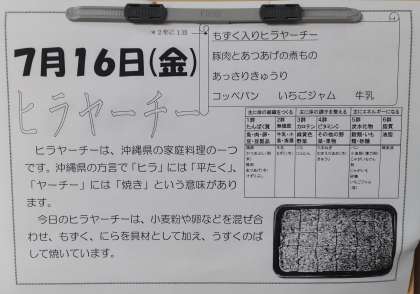 *2年に1回
7月16日(金)
ヒラヤーチー
もずく入りヒラヤーチー
豚肉とあつあげの煮もの
あっさりきゅうり
コッペパン いちごジャム 牛乳
主に体の組織をつくる 主に体の調子を整える 主にエネルギーになる
1群 2群 3群 4群 5群 6群
たんぱく質 無機質 カロテン ビタミンC 炭水化物 脂質
ヒラヤーチーは、沖縄県の家庭料理の一つ
です。沖縄県の方言で「ヒラ」には「平たく」、
「ヤーチー」には「焼き」という意味があり
ます。
今日のヒラヤーチーは、小麦粉や卵などを混ぜ合
わせ、もずく、にらを具材として加え、うすくのば
して焼いています。